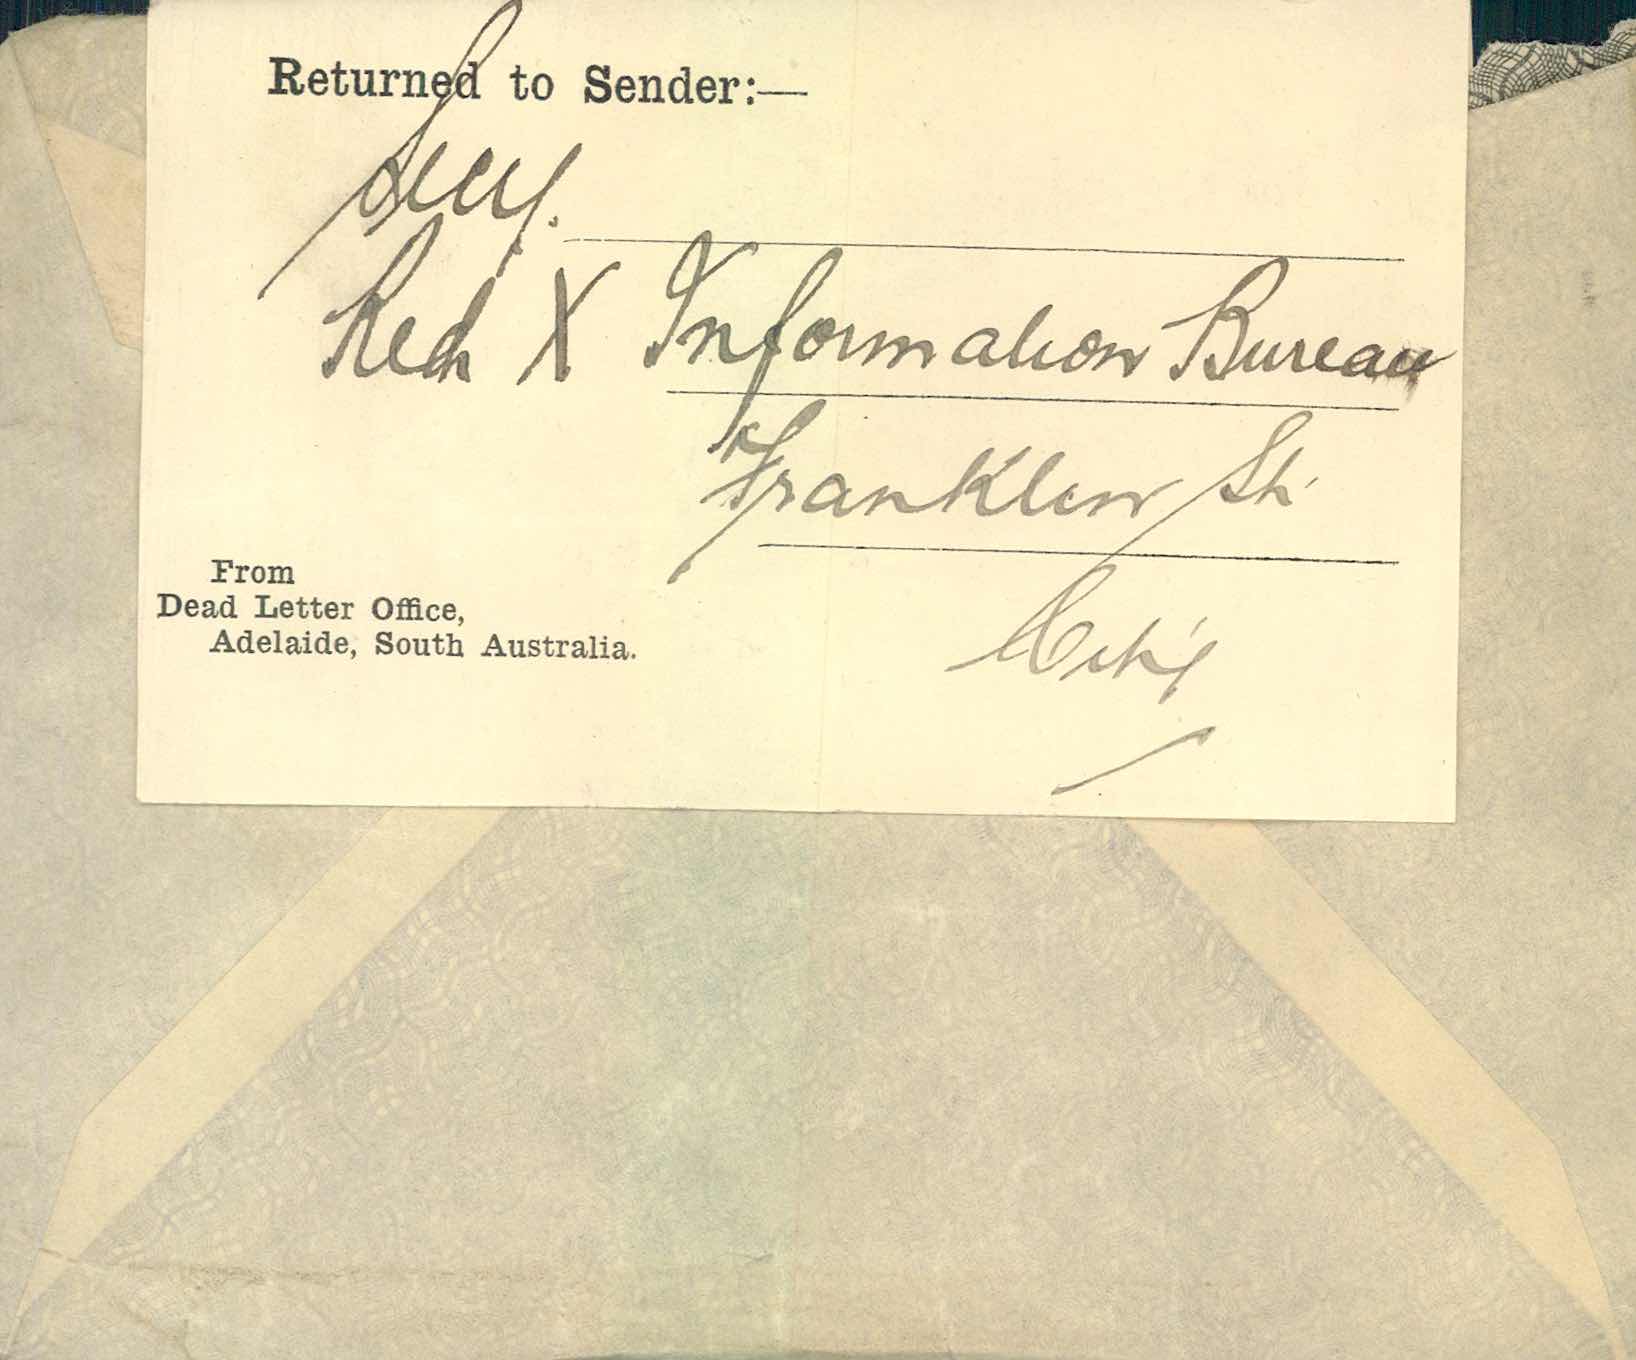 Returned to Sender:—
Secy.
Red X Information Bureau
Franklin St.
City
From
Dead Letter Office,
Adelaide, South Australia.